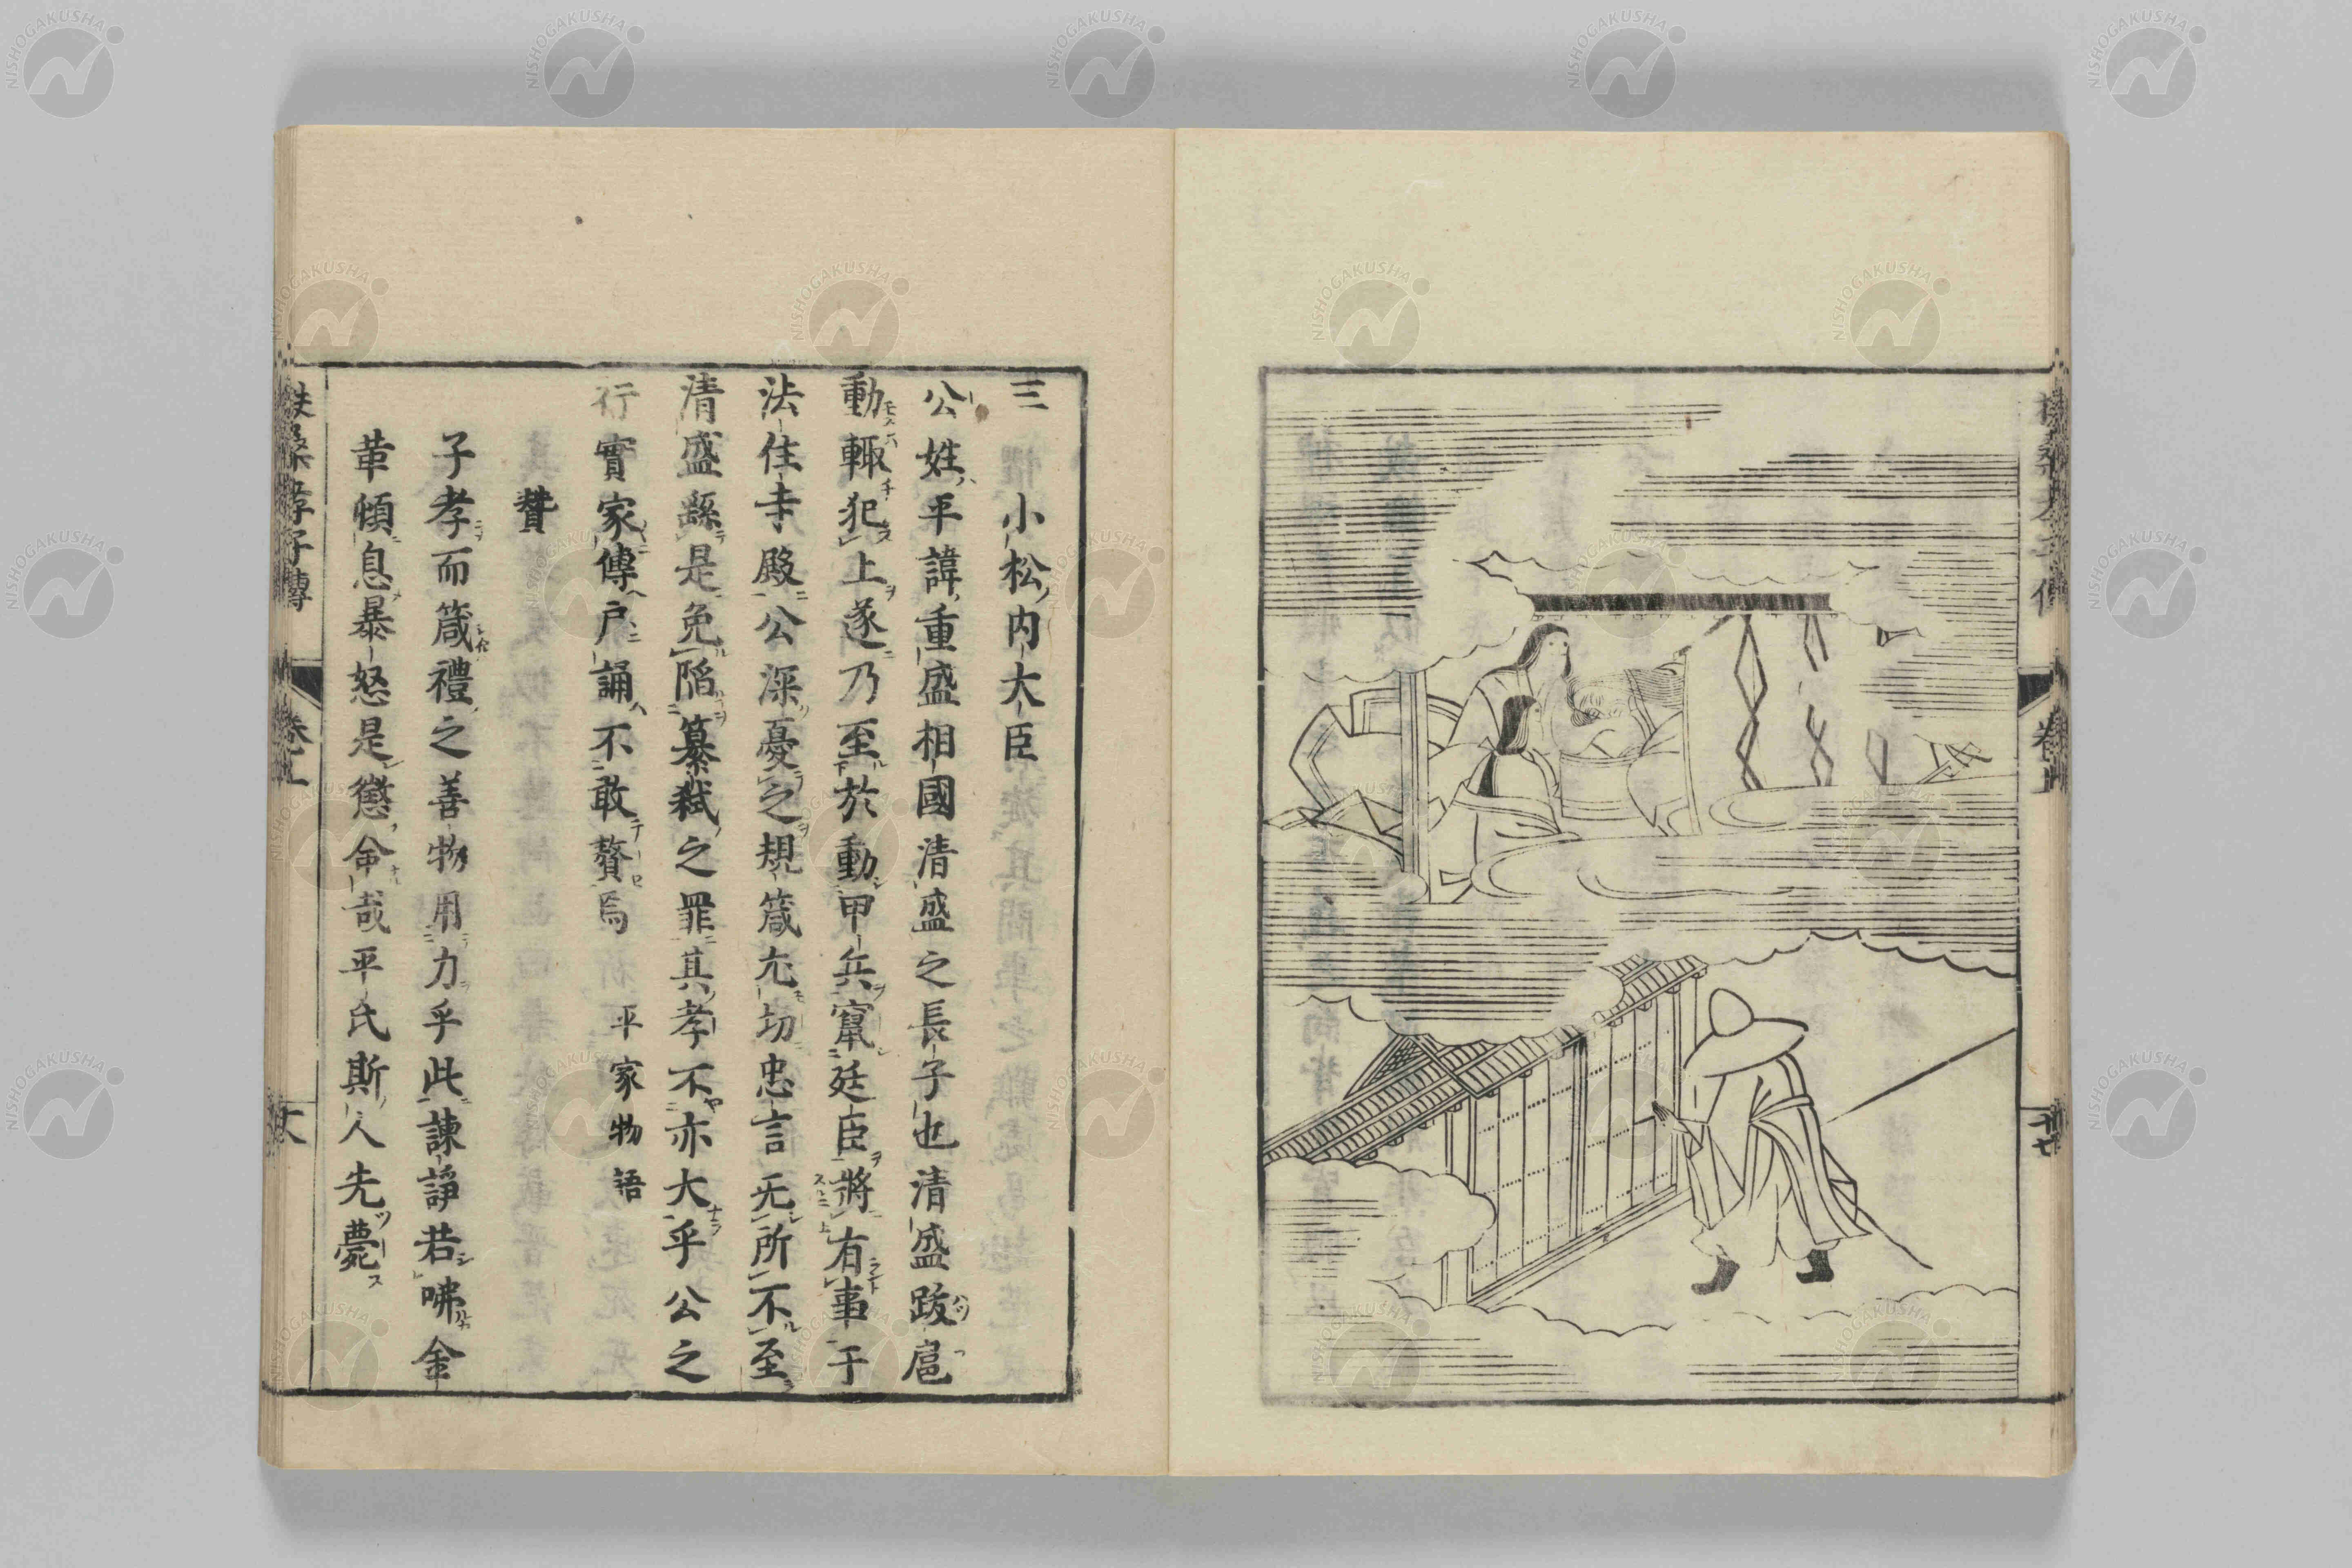 三 小松内大臣
公姓平諱重盛相國清盛之長子也清盛跋扈
動輙犯上遂乃至於動甲兵竄廷臣將有事于
法住寺殿公深憂之規箴尤切忠言无所不至
清盛繇是免陷簒弑之罪其孝不亦大乎公之
行實家傳戸誦不敢贅焉 平家物語
贊
子孝而箴禮之善物用力乎此諫諍若咈金
革傾息暴怒是懲命哉平氏斯人先薨
孝子傳
NISHOGAKUSHA